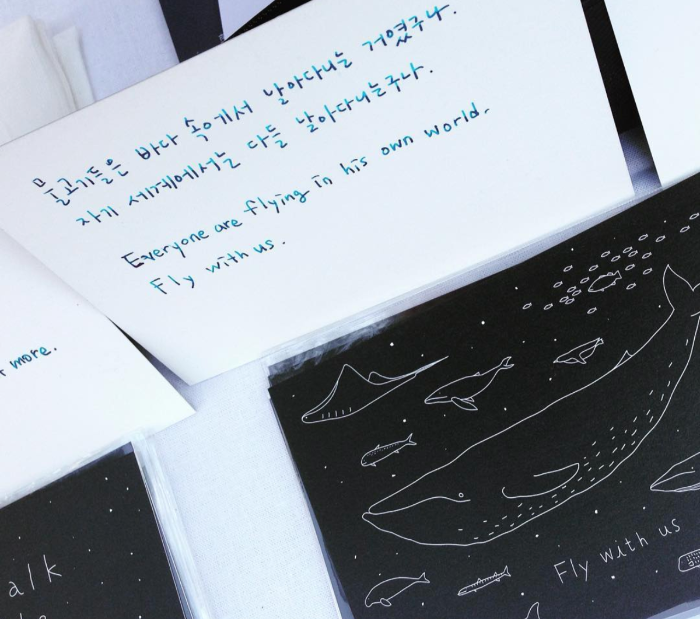 물고기들은 바다 속에서 날아다니는 거였구나.
자기 세계에서는 다들 날아다니는구나.
Everyone are flying in his own world.
Fly with us.
more.
Fly with us
alk